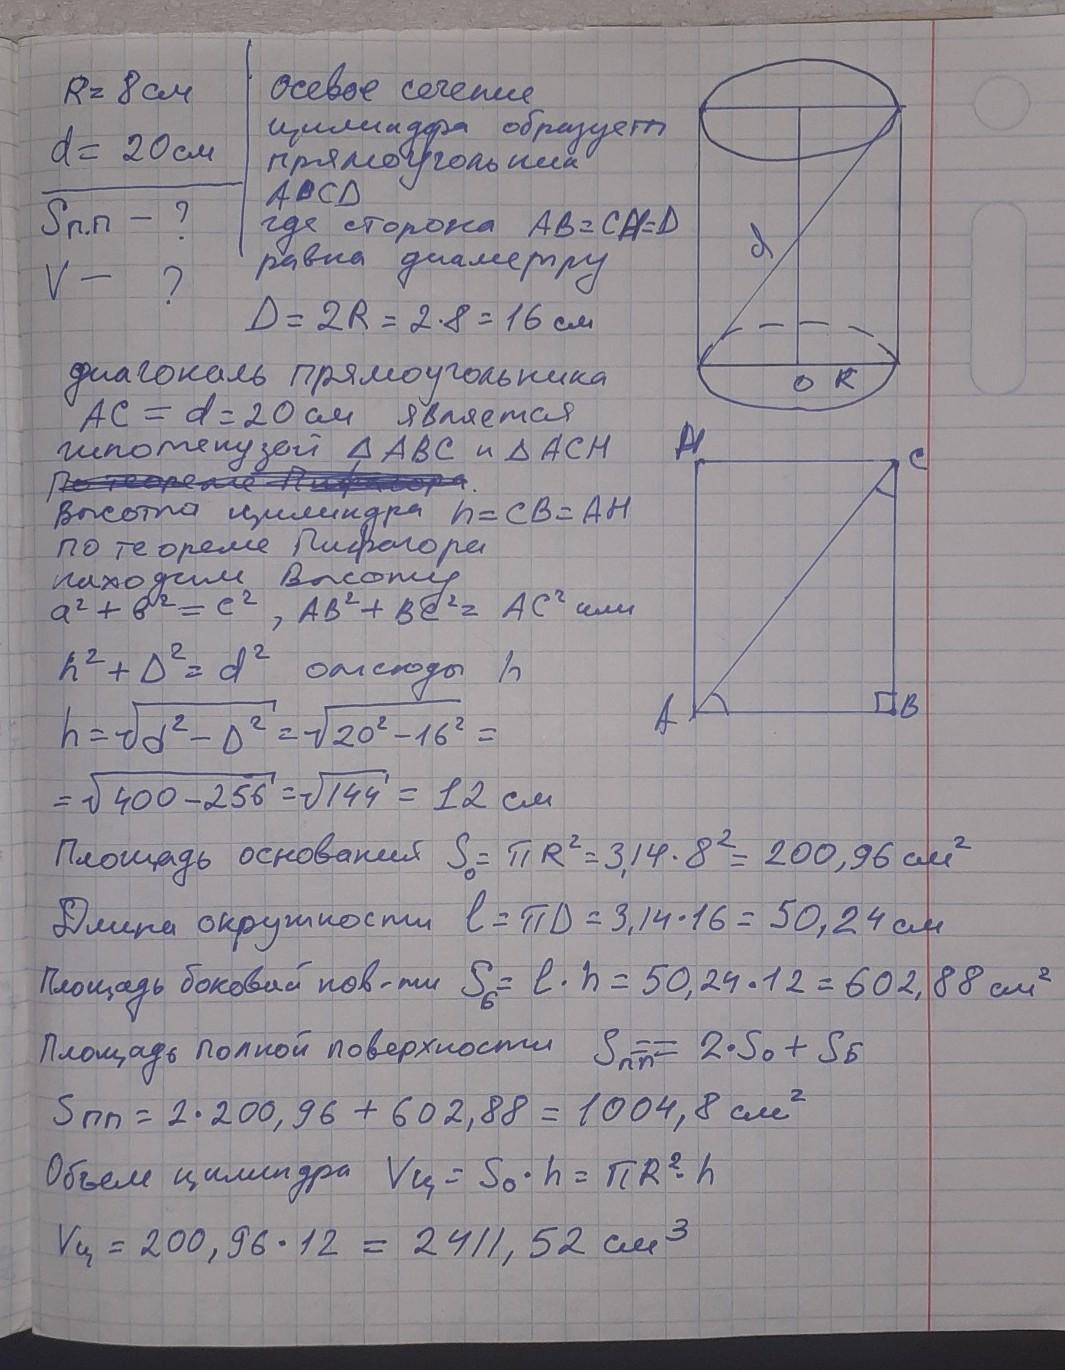 R = 8 см
d = 20 см
Sп.п – ?
V – ?
осевое сечение
цилиндра образует
прямоугольник
ABCD
где сторона AB=CH=D
равна диаметру
D = 2R = 2·8 = 16 см
d
O R
диагональ прямоугольника
AC = d = 20 см является
гипотенузой ΔABC и ΔACH
По теореме Пифагора.
Высота цилиндра h=CB=AH
по теореме Пифагора
находим Высоту
a² + b² = c², AB² + BC² = AC² или
h² + D² = d² отсюды h
h = √d² – D² = √20² – 16² =
= √400 – 256 = √144 = 12 см
H
C
A
B
Площадь основания So = πR² = 3,14·8² = 200,96 см²
Длина окружности l = πD = 3,14·16 = 50,24 см
Площадь боковой пов-ти Sб = l·h = 50,24·12 = 602,88 см²
Площадь полной поверхности Sпп == 2·So + Sб
Sпп = 2·200,96 + 602,88 = 1004,8 см²
Объем цилиндра Vц = So·h = πR²·h
Vц = 200,96·12 = 2411,52 см³